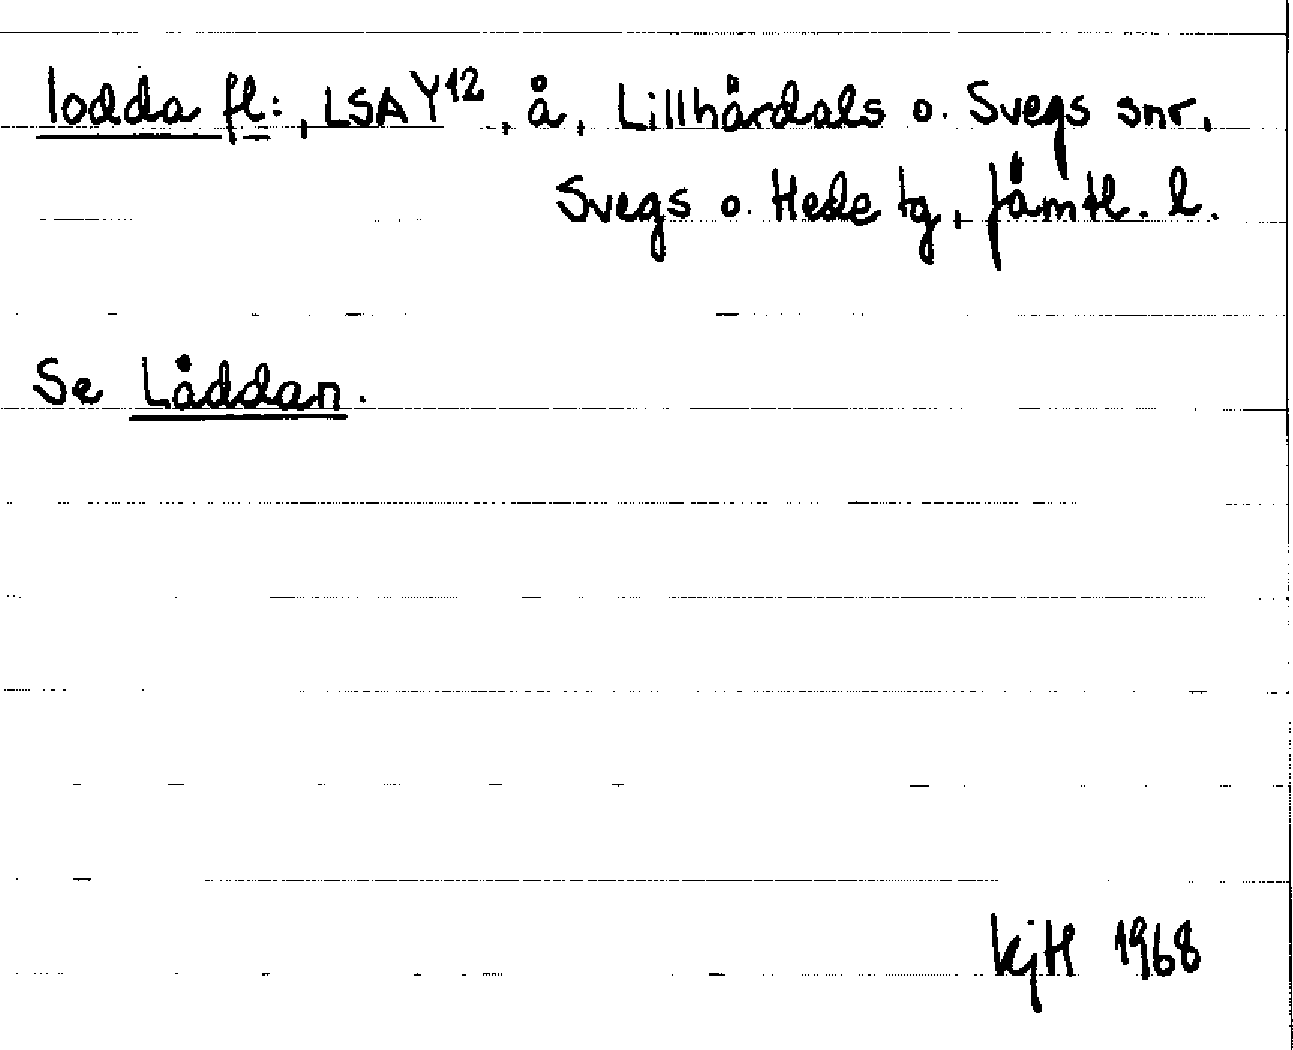 lodda fl:, LSA Y12, å, Lillhärdals o. Svegs snr,
Svegs o. Hede tg, Jämtl. l.
Se Låddan.
KjH 1968